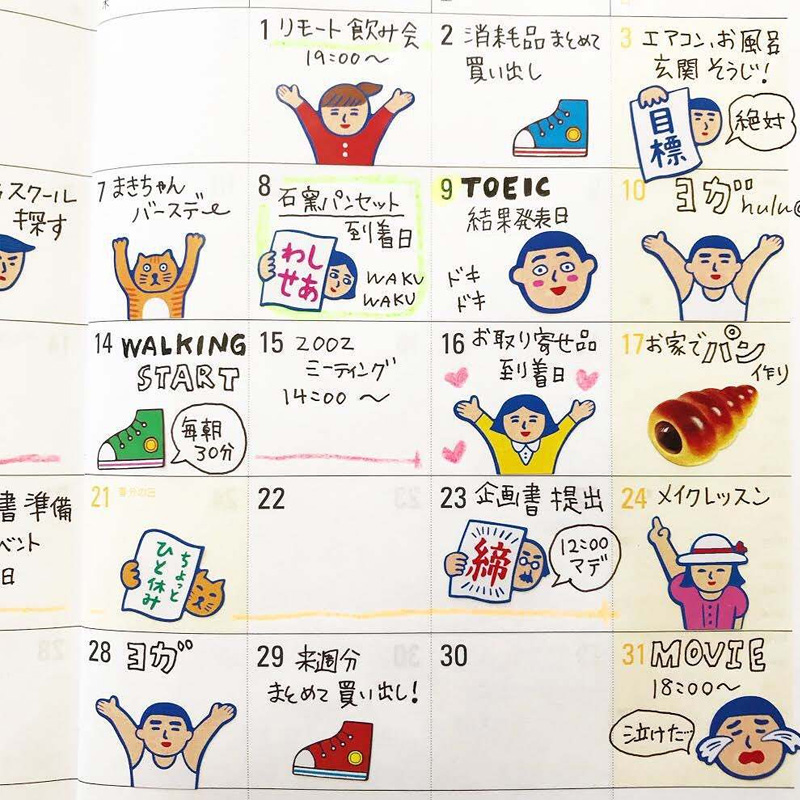 1 リモート飲み会
19:00〜
2 消耗品まとめて
買い出し
3 エアコン、お風呂
玄関そうじ!
目標
絶対
スクール
探す
7 まきちゃん
バースデー
8 石窯パンセット
到着日
わしせあ
WAKU
WAKU
9 TOEIC
結果発表日
ドキ
ドキ
10 ヨガ hulu@
14 WALKING
START
毎朝
30分
15 ZOOZ
ミーティング
14:00 〜
16 お取り寄せ品
到着日
17 お家でパン
作り
書準備
ベント
日
21 春分の日
ちょっと
ひと休み
22
23 企画書提出
締
12:00
マデ
24 メイクレッスン
28 ヨガ
29 来週分
まとめて買い出し!
30
31 MOVIE
18:00〜
泣けた…